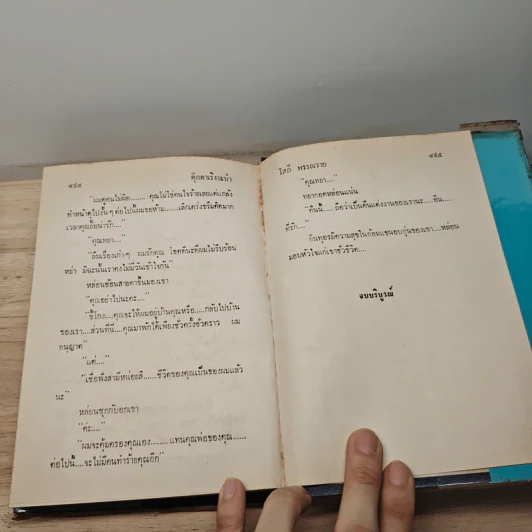 ๔๔๔ ตุ๊กตาเริงระบำ
"ผมพูดคนไม่ผิด...... คุณไม่ใช่คนใจร้ายเลยแค่แกล้ง
ทำหน้าดุไปงั้นๆ ต่อไปนี้ผมขอห้าม......เลิกเคร่งขรึมคิดมาก
เวลาคุณยิ้มน่ารัก...."
"คุณทยา...."
"ลืมเรื่องเก่าๆ ผมรักคุณ โชคดีนะที่ผมไม่รีบร้อน
หย่า มิฉะนั้นเราคงไม่มีวันเข้าใจกัน"
หล่อนช้อนสายตาขึ้นมองเขา
"คุณอย่าไปนะคะ...."
"ขี้โกง....คุณจะให้ผมอยู่บ้านคุณหรือ....กลับไปบ้าน
ของเรา....ส่วนที่นี่....คุณมาพักได้เพียงชั่วครั้งชั่วคราว ผม
อนุญาต"
"แต่...."
"เชื่อฟังสามีหน่อยสิ......ชีวิตของคุณเป็นของผมแล้ว
นะ"
หล่อนซุกกับอกเขา
"ค่ะ...."
"ผมจะคุ้มครองคุณเอง........แทนคุณพ่อของคุณ......
ต่อไปนี้....จะไม่มีคนทำร้ายคุณอีก"
โสภี พรรณราย ๔๔๕
"คุณทยา...."
ทยากอดหล่อนแน่น
"คืนนี้..... ถือว่าเป็นคืนแต่งงานของเรานะ.....อิน....
ที่รัก...."
อินทุอรมีความสุขในอ้อมแขนอบอุ่นของเขา....หล่อน
มอบหัวใจแก่เขาชั่วชีวิต....
จบบริบูรณ์